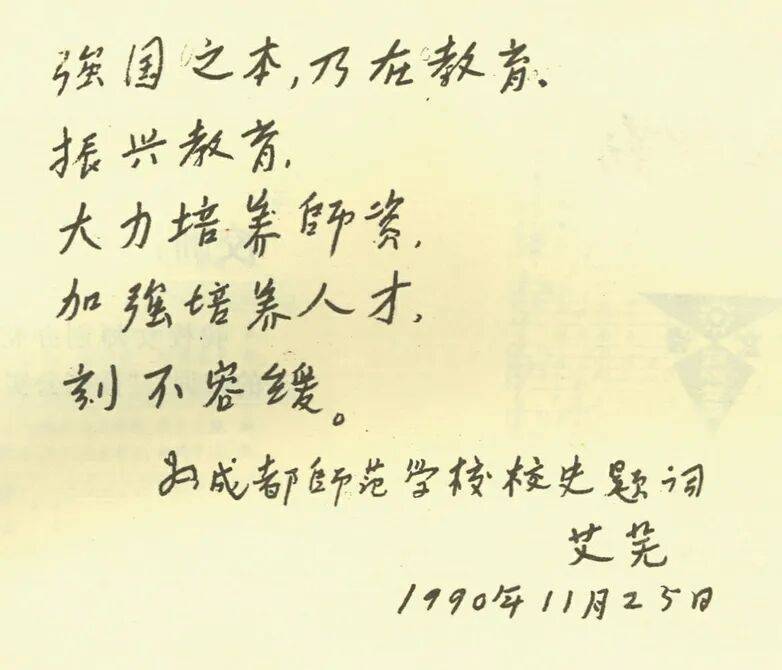 強国之本,乃在教育。
振兴教育,
大力培养师资,
加強培养人才,
刻不容缓。
为成都师范学校校史题词
艾芜
1990年11月25日